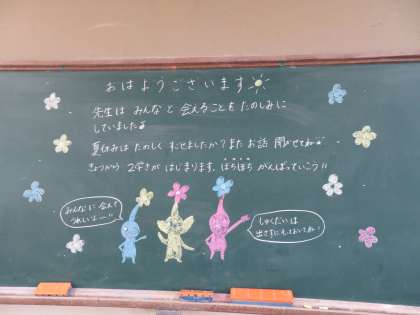 おはようございます
先生は みんなと 会えることを たのしみに
していました♪
夏休みは たのしく すごせましたか？また お話 聞かせてね
きょうから 2学きが はじまります。ぼちぼち がんばっていこう!!
みんなに 会えて
うれしいよー!!
しゅくだいは
出さずにもっておいてね！